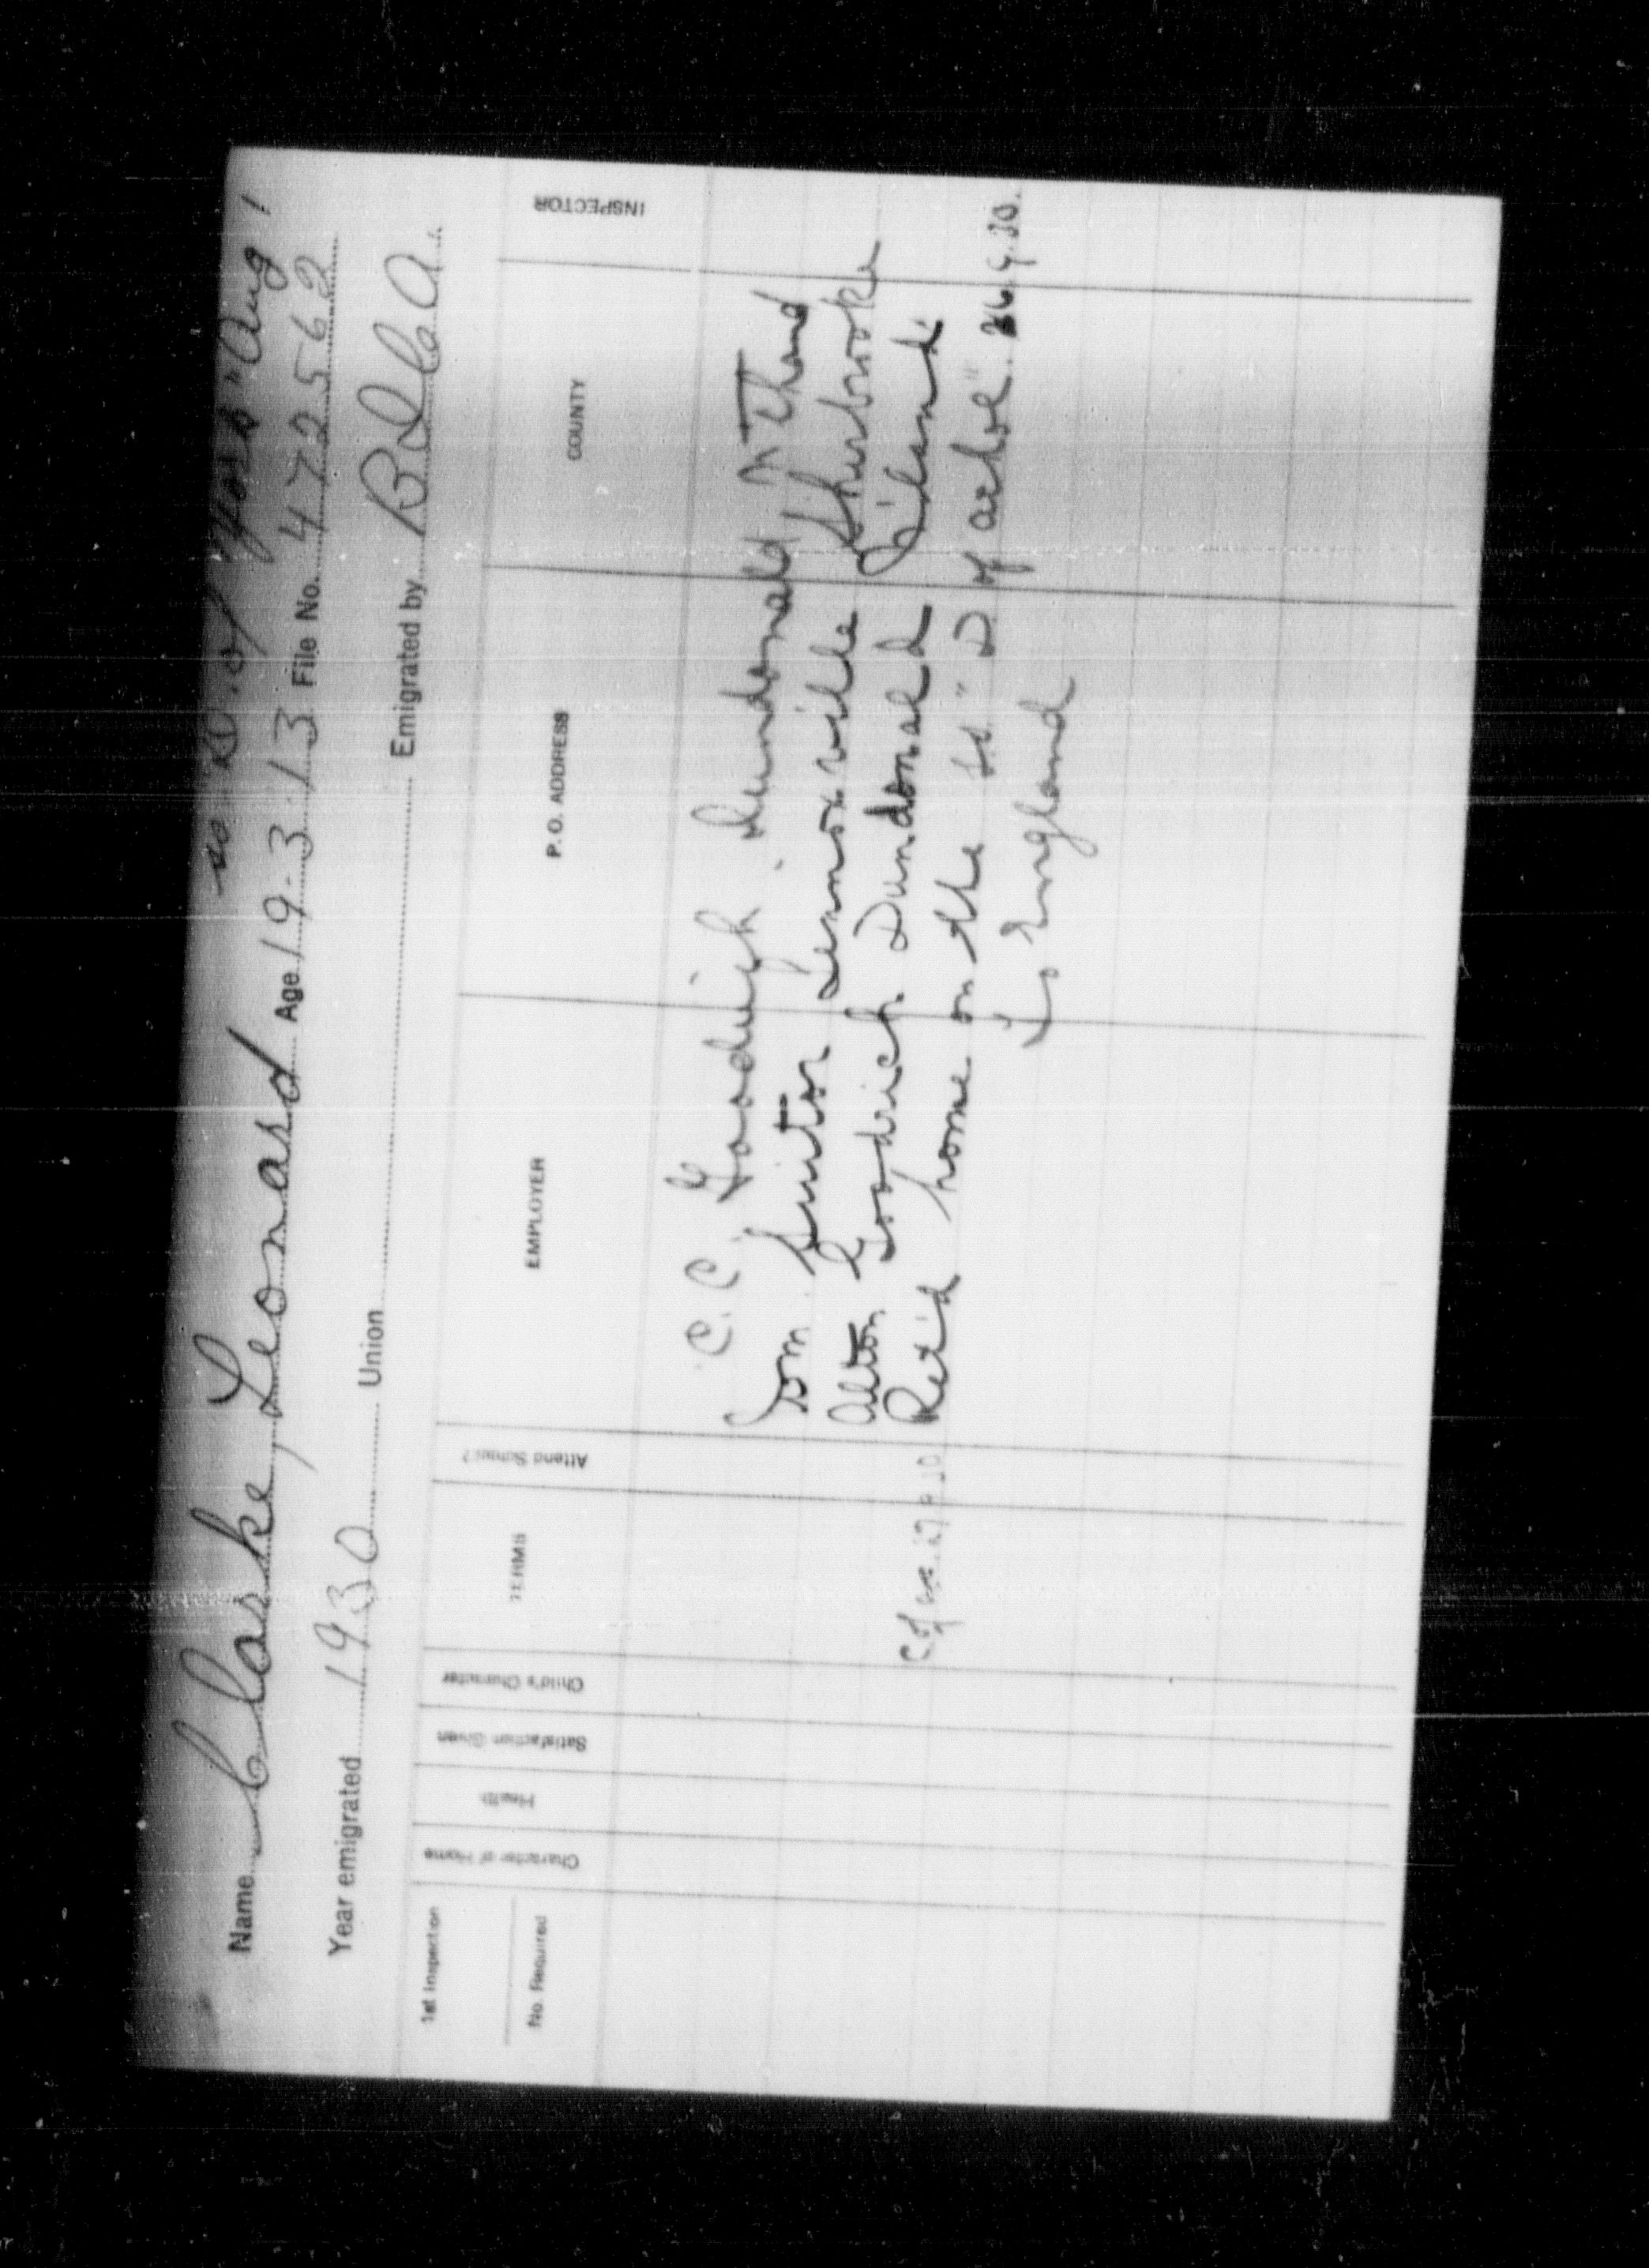 ss "D. of York" Aug 1
Name Clarke, Leonard Age 19. 3.1.13 File No. 472562
Year emigrated 1930 Union Emigrated by B I C A
1st Inspection No. Required Character of Home Health Satisfaction Given Child's Character TERMS Attend School? EMPLOYER P. O. ADDRESS COUNTY INSPECTOR
C. C. Goodrich. Dundonald N'thand
Tom Suitor Lennoxville Shurbrooke
Alton Goodrich Dundonald
27.9.30 Ret'd home on the SS "D of Athol" 26.9.30.
to England